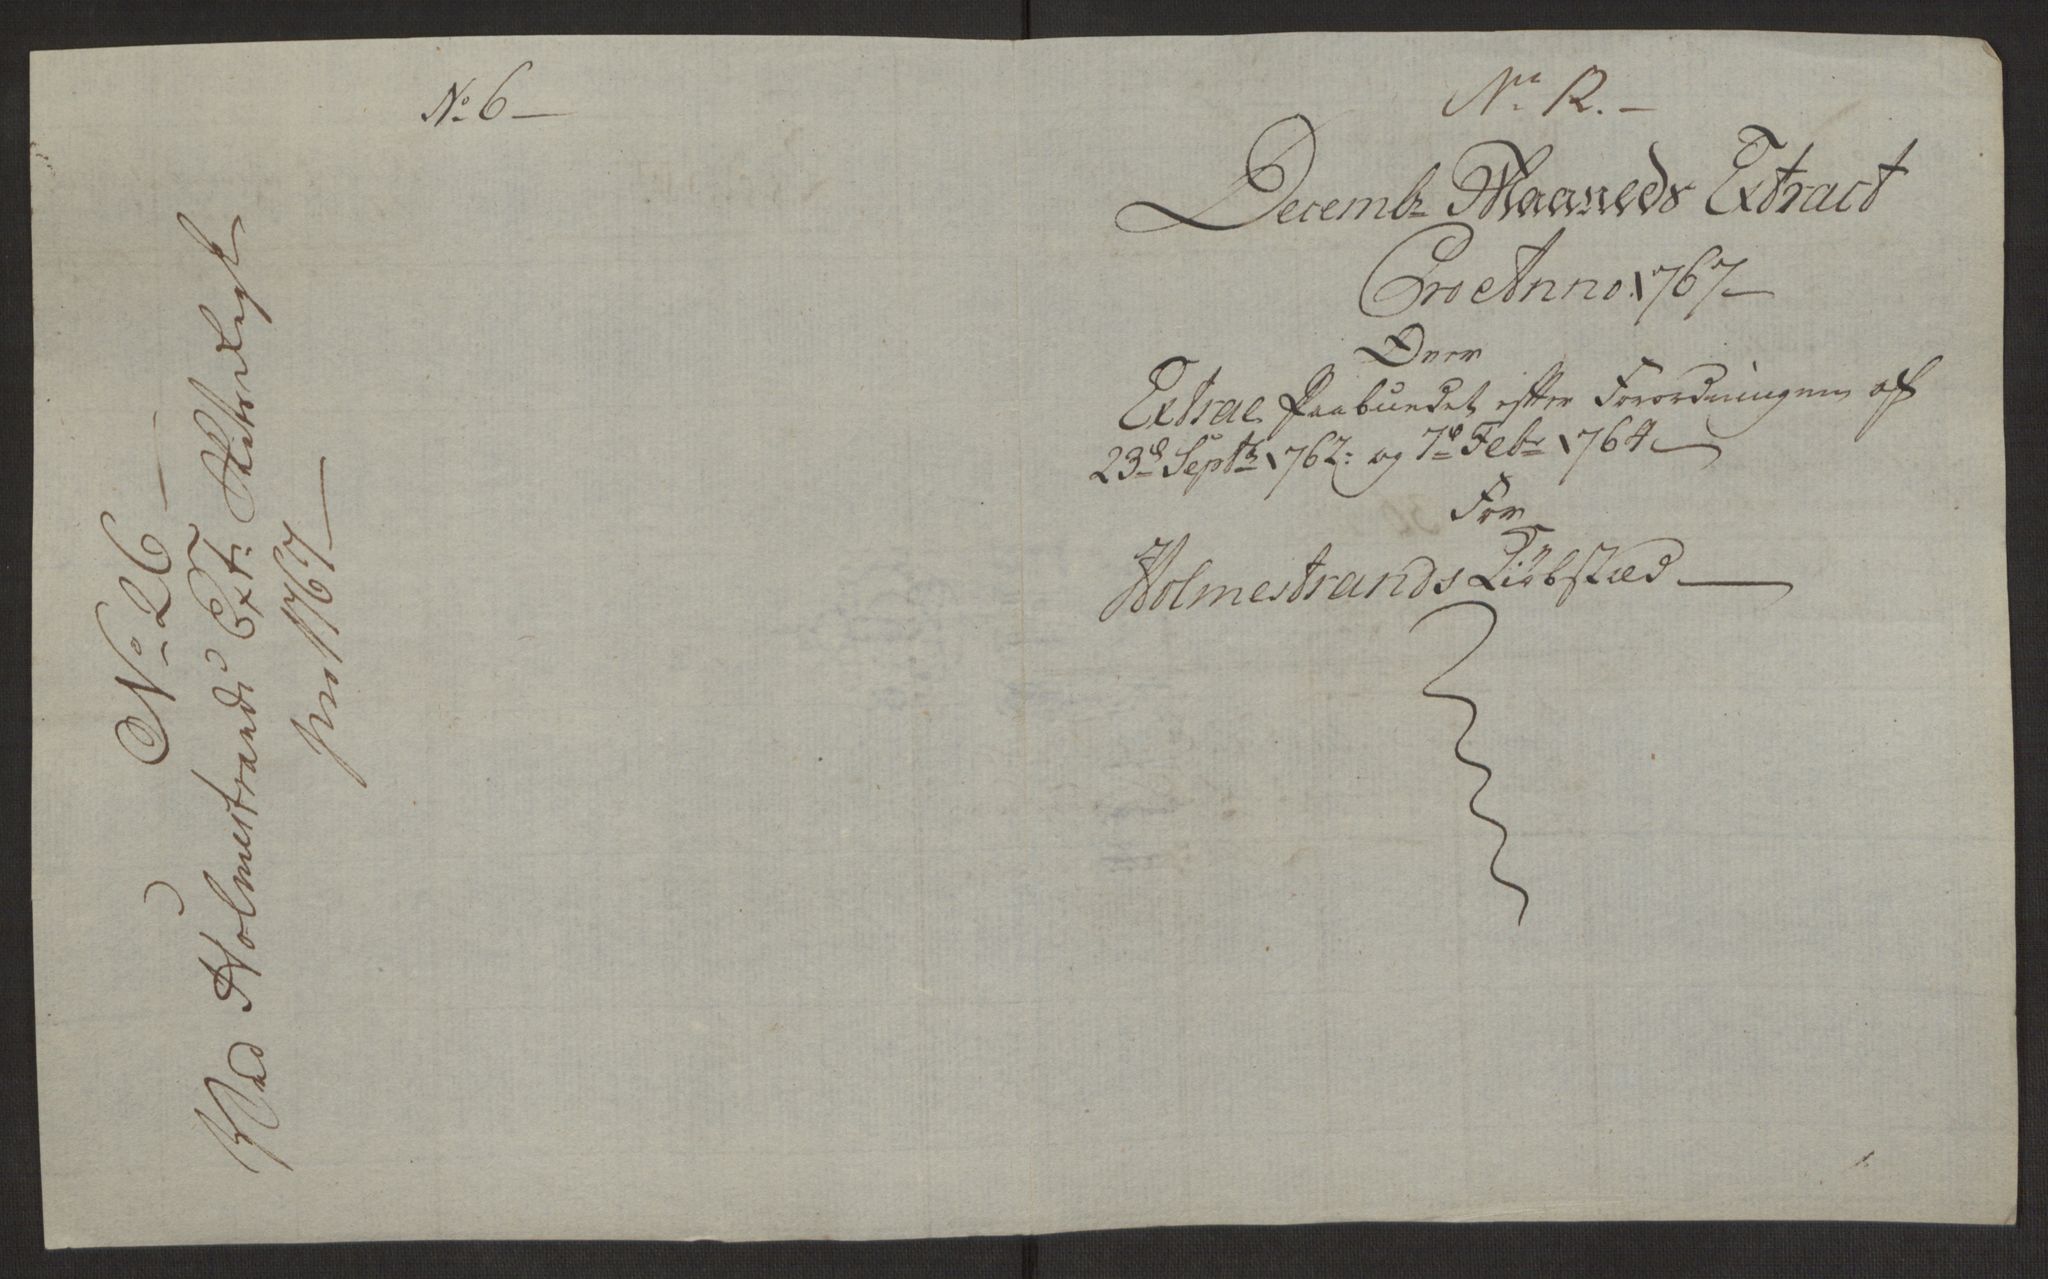 No 6
No 26
Ved Holmestrands Ext: Skatteregsk
pro 1767
No 12.
Decembr Maaneds Extract
Pro Anno 1767
Over
Extrae Paabudet efter Forordningen af
23de Septbr 1762: og 7de Febr 1764
For
Holmestrands Kiøbstæd